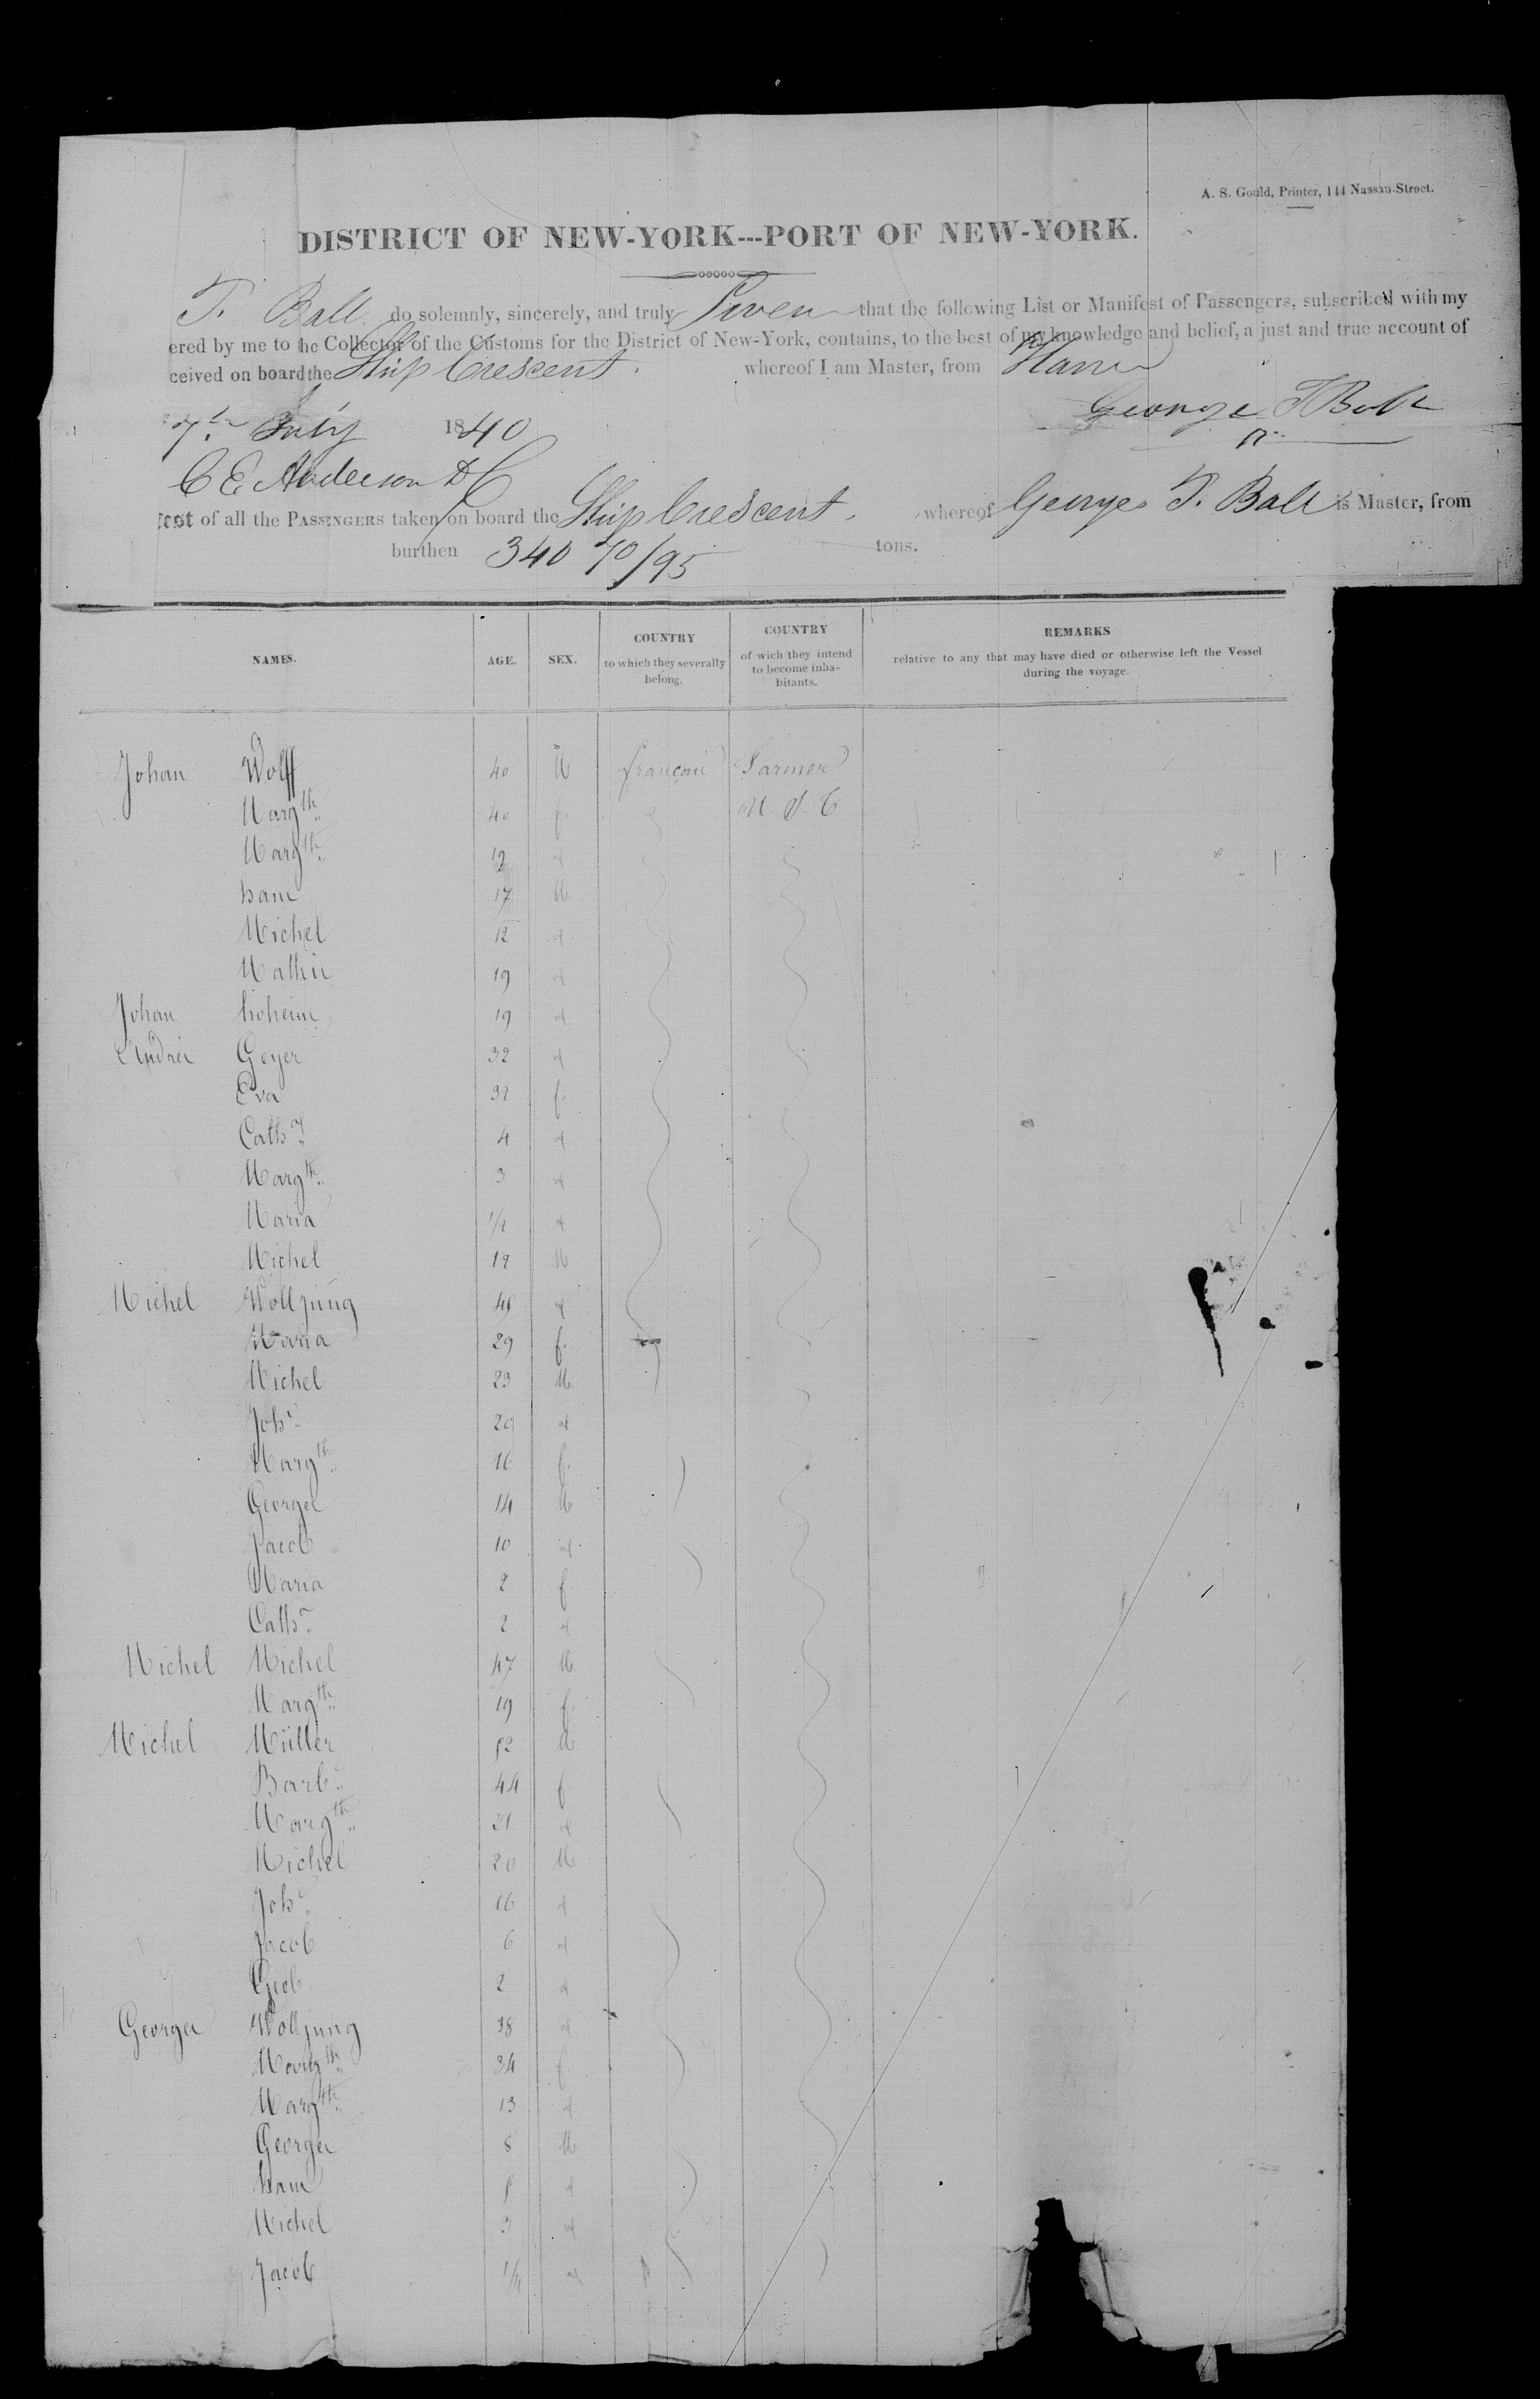 A. S. Gould, Printer, 144 Nassau-Street.
DISTRICT OF NEW-YORK---PORT OF NEW-YORK.
T. Ball do solemnly, sincerely, and truly Swear that the following List or Manifest of Passengers, subscribed with my
ered by me to the Collector of the Customs for the District of New-York, contains, to the best of my knowledge and belief, a just and true account of
ceived on board the Ship Crescent. whereof I am Master, from Havre
7th July 1840 George T Ball
C E Anderson
fest of all the PASSENGERS taken on board the Ship Crescent. whereof George T. Ball is Master, from
burthen 340 70/95 tons.
NAMES. AGE. SEX. COUNTRY to which they severally belong. COUNTRY of wich they intend to become inhabitants. REMARKS relative to any that may have died or otherwise left the Vessel during the voyage.
Johan Wolff 40 M français Farmer
Margth 40 f. U. S.
Margth 12
17 M
Michel 12
19
Johan 19
Andrei Geyer 32
Eva 32 f.
Cath 4
Margth 3
Maria 1/2
Michel 19 M
Michel Wolljung 48
Maria 29 f.
Michel 23 M.
Joh 20
Margth 16 f.
George 14 M
Jacob 10
Maria 2 f
Cath 2
Michel Michel 47 M
Margth 19 f.
Michel Müller 52 M
Barb 44 f
Margth 21
Michel 20 M
Joh 16
Jacob 6
2
George Wolljung 38
Margth 34 f
Margth 13
George 8 M
Michel 3
Jacob